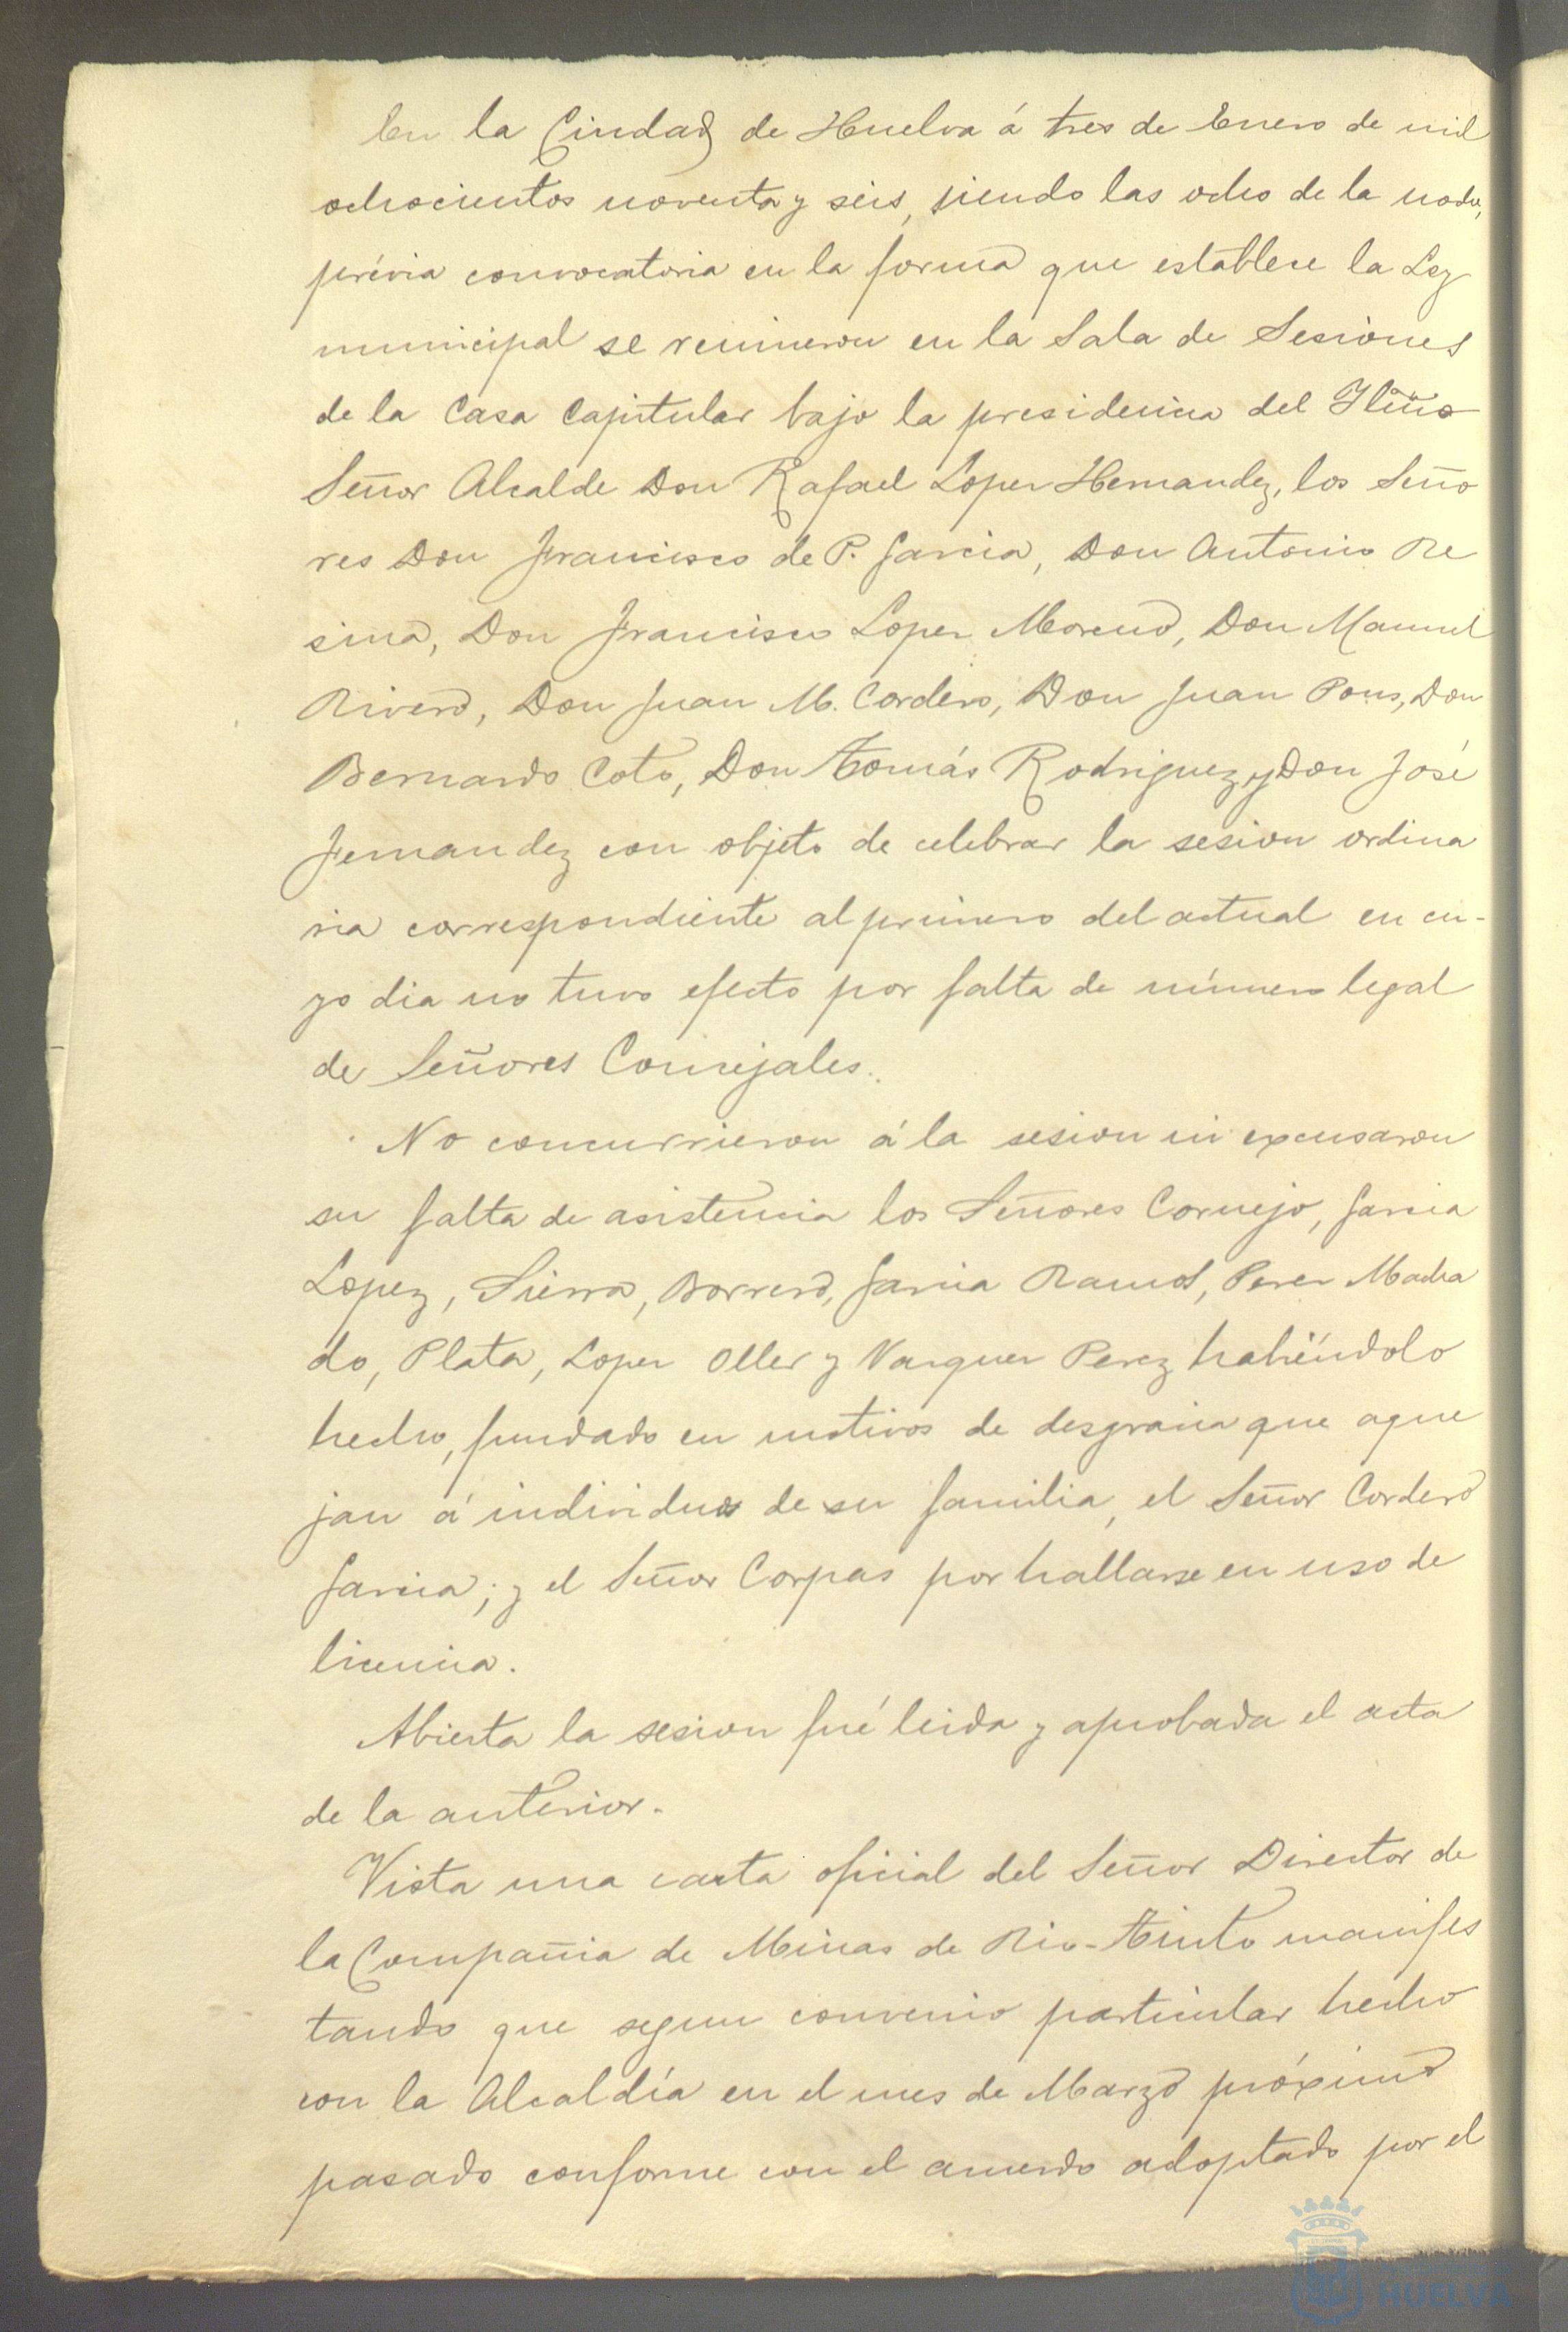 En la Ciudad de Huelva á tres de Enero de mil
ochocientos noventa y seis, siendo las ocho de la noche,
prévia convocatoria en la forma que establece la Ley
municipal se reunieron en la Sala de Sesiones
de la Casa Capitular bajo la presidencia del Iltmo
Señor Alcalde Don Rafael Lopez Hernandez, los Seño
res Don Francisco de P. Garcia, Don Antonio Re
sina, Don Francisco Lopez Moreno, Don Manuel
Rivero, Don Juan M. Cordero, Don Juan Pons, Don
Bernardo Coto, Don Tomás Rodriguez y Don José
Fernandez con objeto de celebrar la sesion ordina
ria correspondiente al primero del actual en cu-
yo dia no tuvo efecto por falta de número legal
de Señores Concejales.
No concurrieron á la sesion ni excusaron
su falta de asistencia los Señores Cornejo, Garcia
Lopez, Sierra, Borrero, Garcia Ramos, Perez Macha
do, Plata, Lopez Oller y Vazquez Perez habiéndolo
hecho, fundado en motivos de desgracia que aque
jan á individuos de su familia, el Señor Cordero
Garcia; y el Señor Corpas por hallarse en uso de
licencia.
Abierta la sesion fué leida y aprobada el acta
de la anterior.
Vista una carta oficial del Señor Director de
la Compañia de Minas de Rio-Tinto manifes
tando que segun convenio particular hecho
con la Alcaldía en el mes de Marzo próximo
pasado conforme con el acuerdo adoptado por el
HUELVA